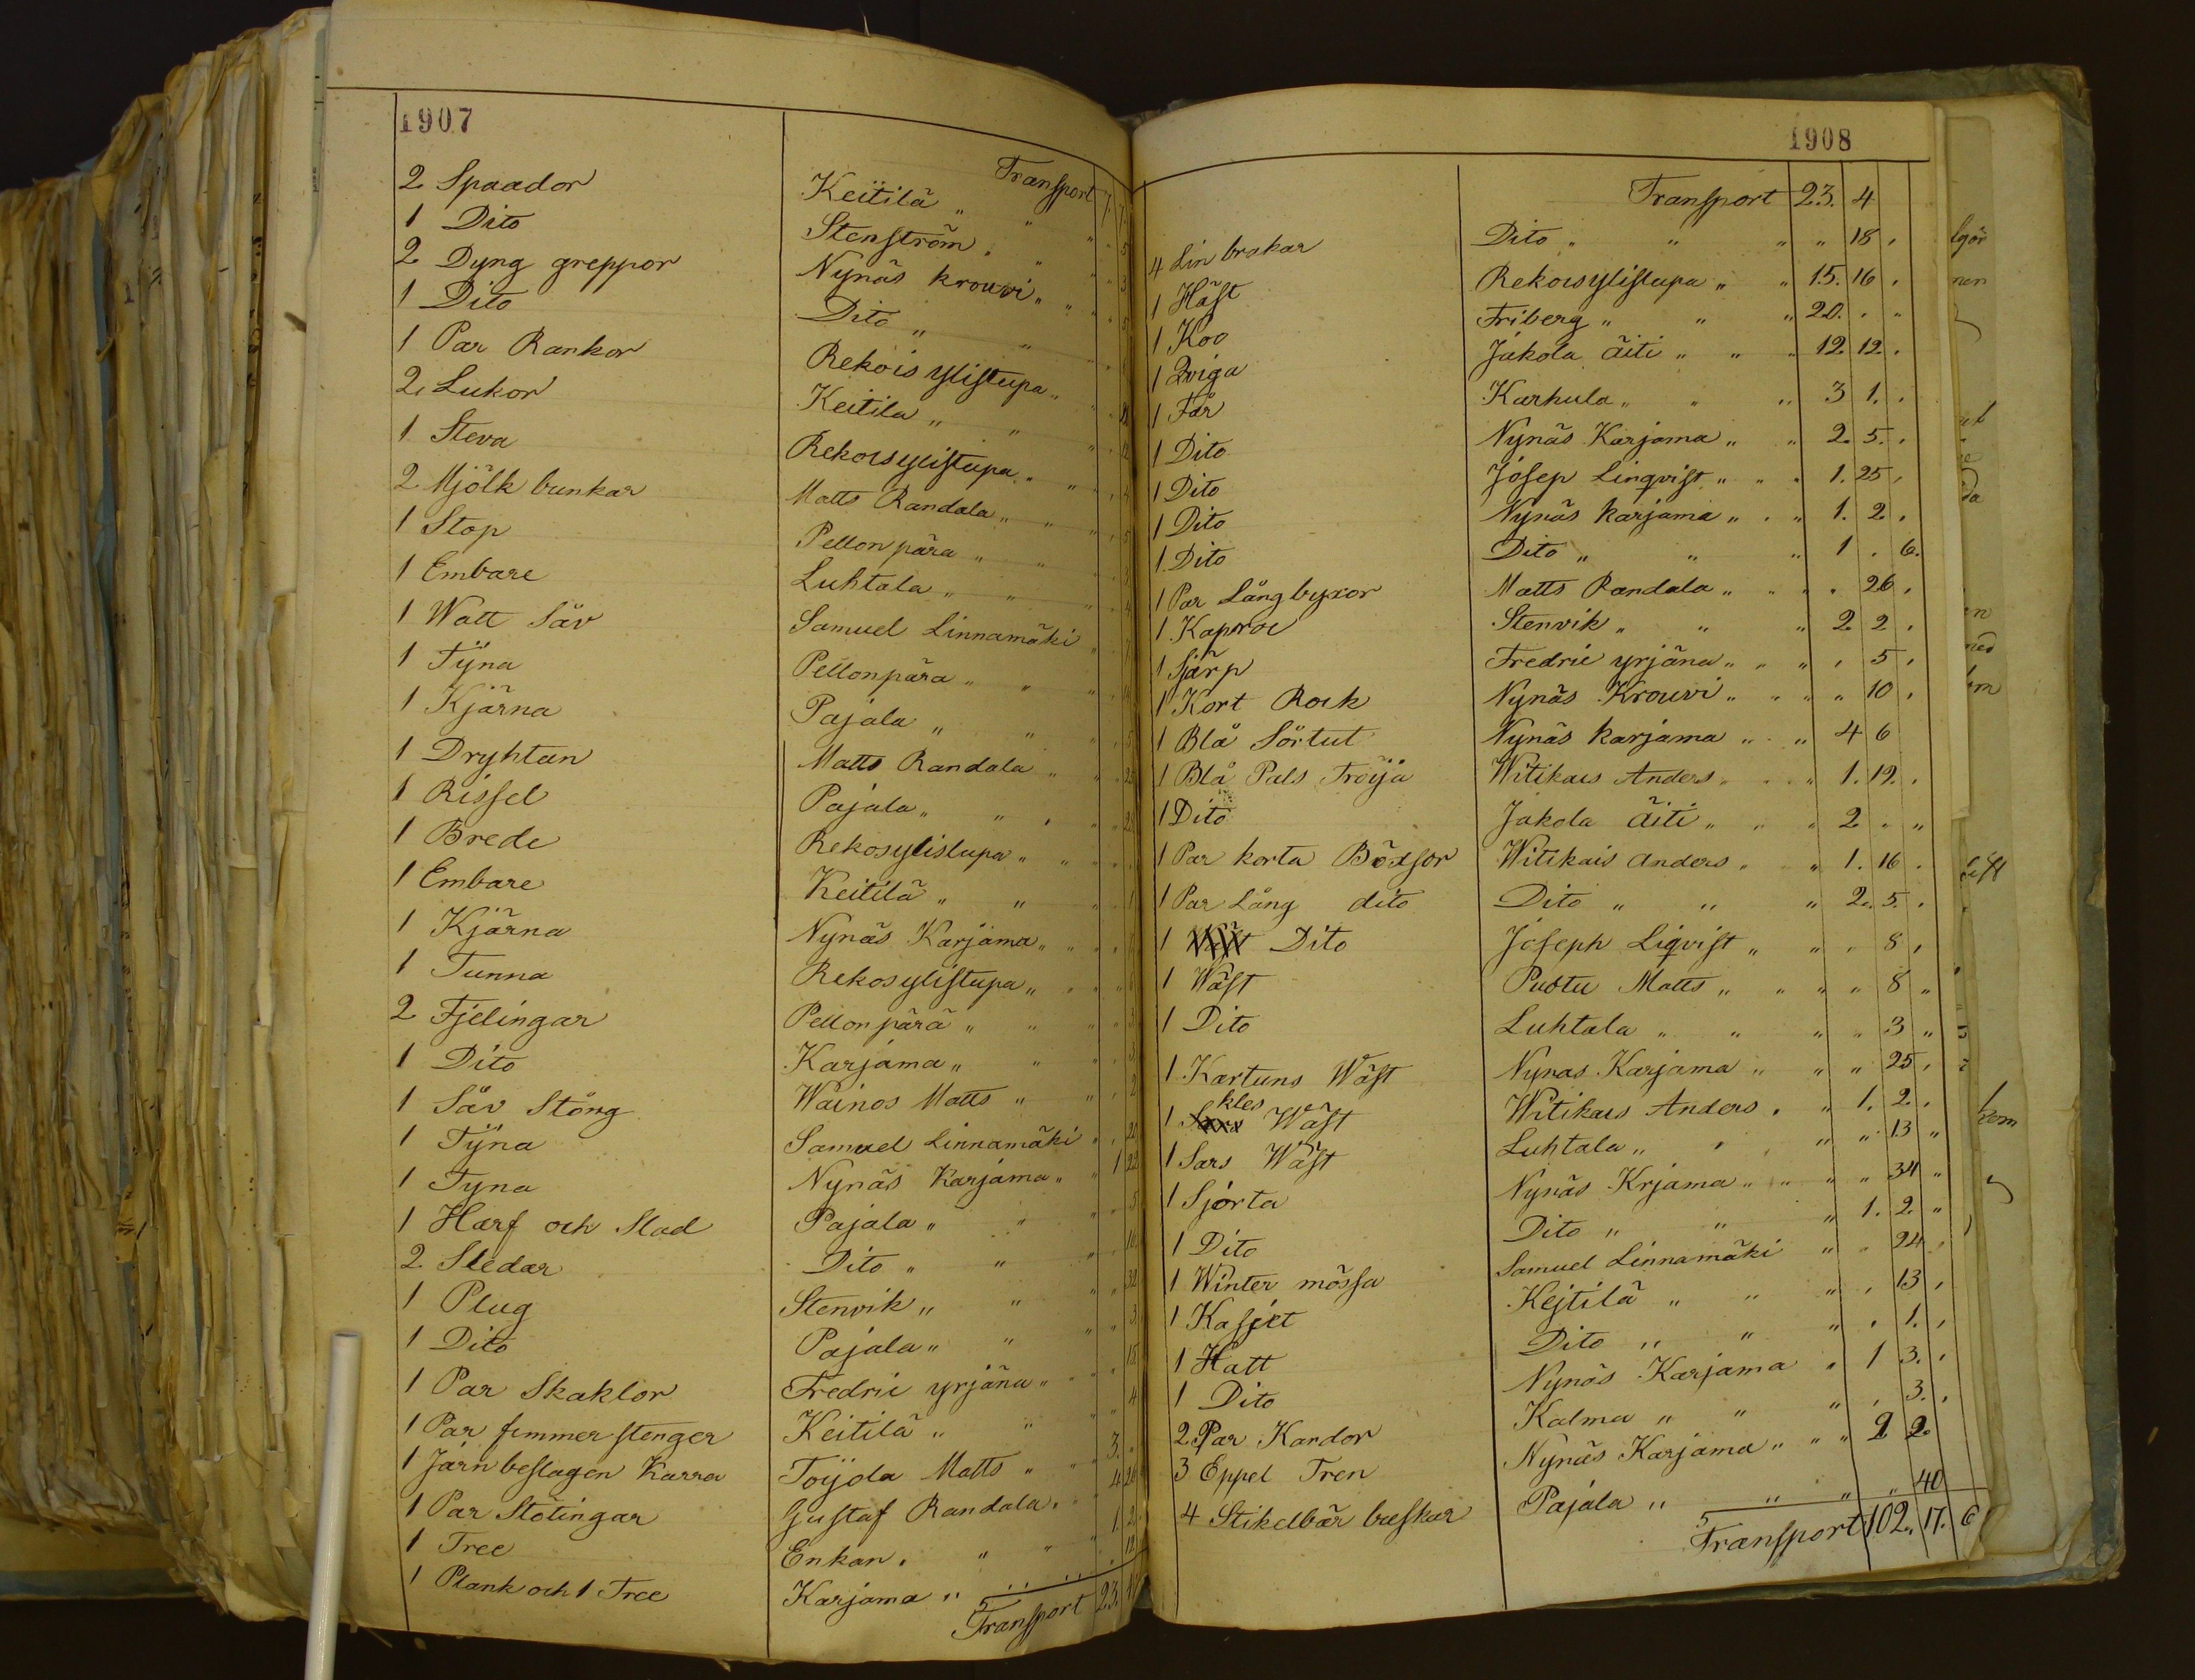 1907
Transport 7.
2 Spaador Keitilä " " "
1 Dito Stenström " " " 5
2 Dyng greppor Nynäs krouvi " " " 3
1 Dito Dito " " "
1 Par Rankor Rekois ylistupa "
2 Lukor Keitila " " "
1 Steva Rekoisylistupa " "
2 Mjölk bunkar Matts Randala " " "
1 Stop Pellon pära " "
1 Embare Luhtala " " "
1 Watt Säv Samuel Linnamäki "
1 Tÿna Pellonpära " " "
1 Kjärna Pajala " " "
1 Dryhtan Matts Randala " "
1 Rissel Pajala " " "
1 Brede Rekosylistupa " "
1 Embare Keitilä " "
1 Kjärna Nynäs Karjama " "
1 Tunna Rekosylistupa " "
2 Fjelingar Pellon pärä " " " 3
1 Dito Karjama " " " 3
1 Säv Stöng Wäinos Matts " " 2
1 Tÿna Samuel Linnamäki " 20
1 Tyna Nynäs Karjama " " 1 22
1 Harf och Slad Pajala " " " 5
2 Sledar Dito " " " 10
1 Plug Stenvik " " " 32
1 Dito Pajala " " " 3
1 Par Skaklor Fredric yrjäna " " 15
1 Par fimmer stenger Keitilä " " " 4
1 Järn beslagen Karra Toijola Matts " " 3.
1 Par Stötingar Gustaf Randala " " 4 26
1 Tree Enkan " " " 1 2
1 Plank och 1 Tree Karjama " " " 12
Transport 23.
1908
Transport 23. 4
4 Lin brakar Dito " " " " 18 "
1 Häst Rekoisylistupa " " 15. 16 "
1 Koo Friberg " " " 20. " "
1 Qviga Jakola äiti " " " 12. 12 "
1 Får Karhula " " " 3 1. "
1 Dito Nynäs Karjama " " 2. 5. "
1 Dito Josep Linqvist " " " 1. 25 "
1 Dito Nynäs karjama " " " 1. 2 "
1 Dito Dito " " " 1 " 6.
1 Par Långbyxor Matts Randala " " " " 26 "
1 Kaprok Stenvik " " " 2 2 "
1 Sjärp Fredric yrjäna " " " " 5 "
1 Kort Rock Nynäs Krouvi " " " " 10 "
1 Blå Sörtut Nynäs karjama " " 4 6
1 Blå Pals Tröija Witikais Anders " " 1. 19. "
1 Dito Jakola Äiti " " " 2 " "
1 Par korta Böxsor Witikais anders " " 1. 16 "
1 Par Lång dito Dito " " " 2. 5. "
1 Dito Joseph Liqvist " " " 8 "
1 Wäst Puotu Matts " " " " 8 "
1 Dito Luhtala " " " " 3 "
1 Kartuns Wäst Nynas Karjama " " " 25 "
kles
1 Wäst Witikais Anders " " 1. 2. "
1 Sars Wäst Luhtala " " " " 13 "
1 Sjorta Nynäs Krjama " " " " 34 "
1 Dito Dito " " " 1. 2. "
1 Winter mössa Samuel Linnamäki " " 24 "
1 Kasjet Kejtilä " " " " 13 "
1 Hatt Dito " " " " 1. "
1 Dito Nynäs Karjama " 1 3. "
2 Par Kardor Kalma " " " " 3. "
3 Eppel Tren Nynäs Karjama " " " 2 2
4 Stikelbär buskar Pajala " " " " 40
Transport 102. 17. 6